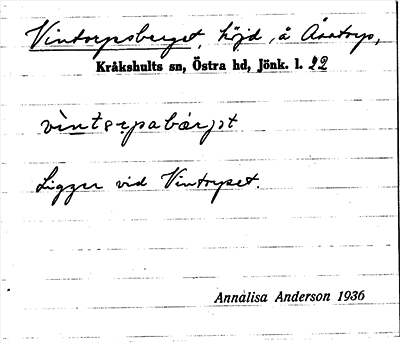 Vintorpsberget, höjd, å Åsatorp,
Kråkshults sn, Östra hd, Jönk. l. 22
Ligger vid Vintorpet.
Annalisa Anderson 1936